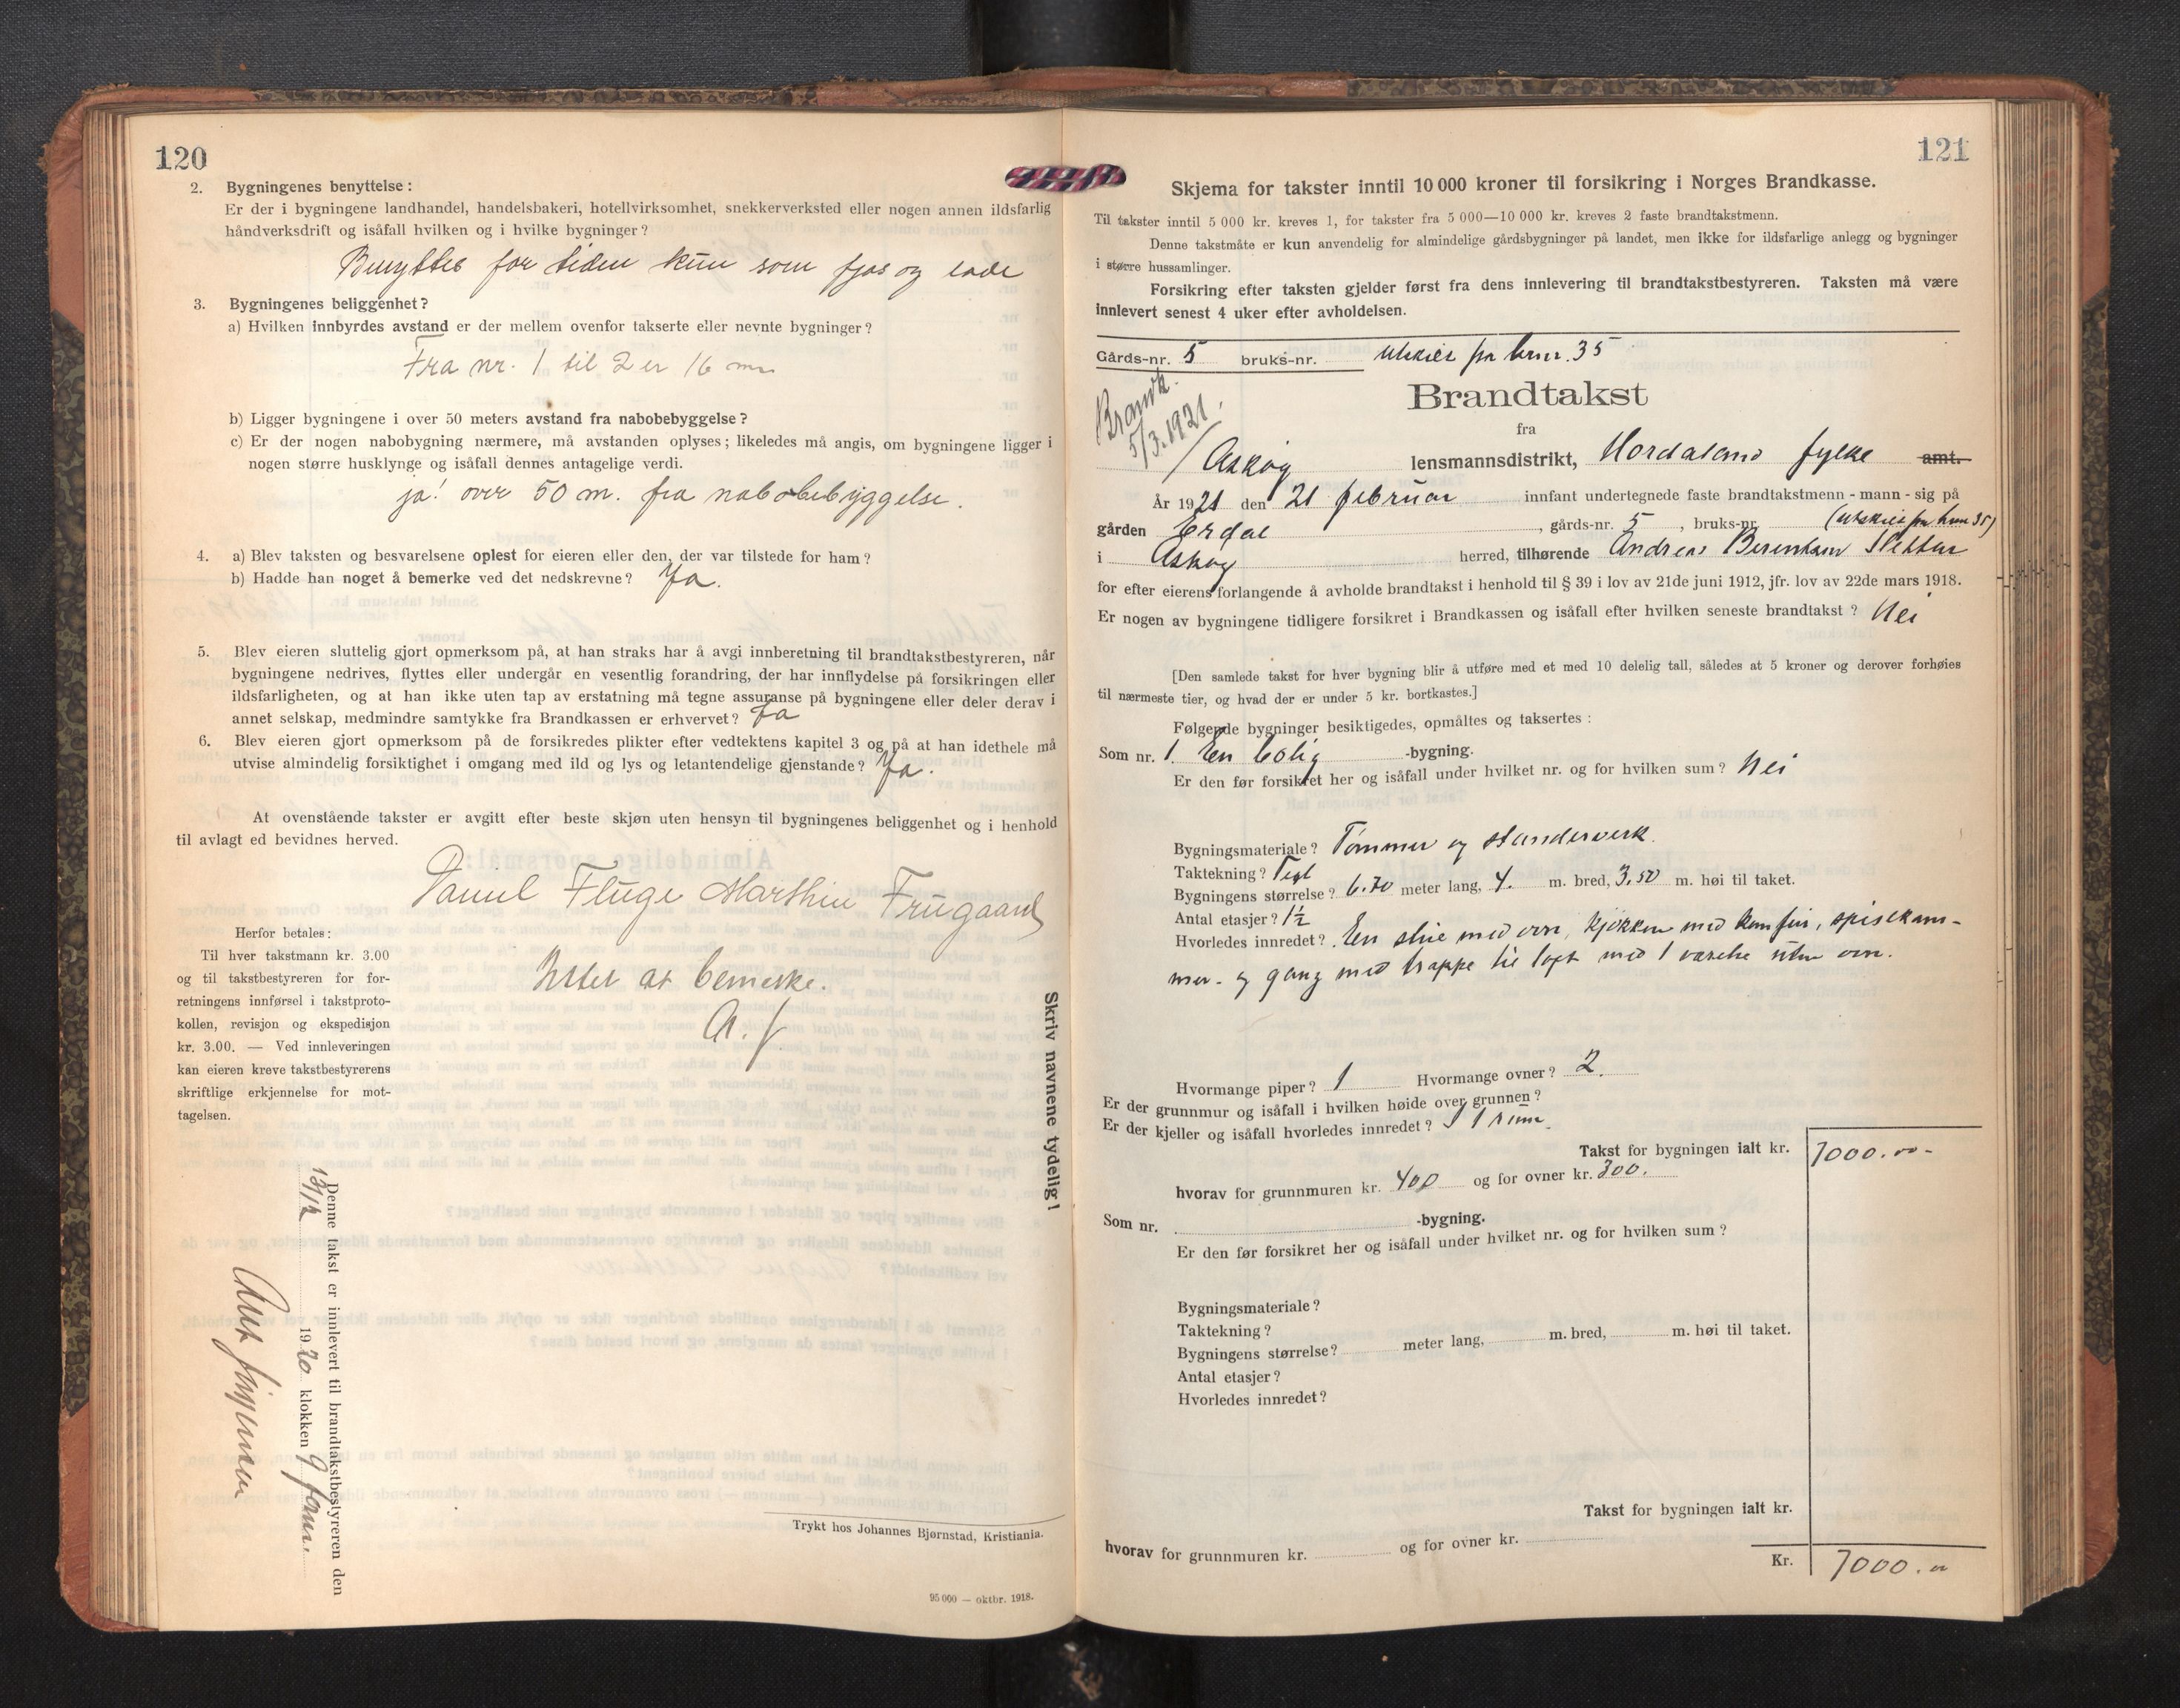 120
2. Bygningenes benyttelse:
Er der i bygningene landhandel, handelsbakeri, hotellvirksomhet, snekkerverksted eller nogen annen ildsfarlig
håndverksdrift og isåfall hvilken og i hvilke bygninger?
Benyttes for tiden kun som fjøs og lade
3. Bygningenes beliggenhet?
a) Hvilken innbyrdes avstand er der mellem ovenfor takserte eller nevnte bygninger?
Fra nr. 1 til 2 er 16 m
b) Ligger bygningene i over 50 meters avstand fra nabobebyggelse?
c) Er der nogen nabobygning nærmere, må avstanden oplyses; likeledes må angis, om bygningene ligger i
nogen større husklynge og isåfall dennes antagelige verdi.
ja! over 50 m. fra nabobebyggelse.
4. a) Blev taksten og besvarelsene oplest for eieren eller den, der var tilstede for ham?
b) Hadde han noget å bemerke ved det nedskrevne? Ja.
5. Blev eieren sluttelig gjort opmerksom på, at han straks har å avgi innberetning til brandtakstbestyreren, når
bygningene nedrives, flyttes eller undergår en vesentlig forandring, der har innflydelse på forsikringen eller
ildsfarligheten, og at han ikke uten tap av erstatning må tegne assuranse på bygningene eller deler derav i
annet selskap, medmindre samtykke fra Brandkassen er erhvervet? Ja
6. Blev eieren gjort opmerksom på de forsikredes plikter efter vedtektens kapitel 3 og på at han idethele må
utvise almindelig forsiktighet i omgang med ild og lys og letantendelige gjenstande? Ja.
At ovenstående takster er avgitt efter beste skjøn uten hensyn til bygningenes beliggenhet og i henhold
til avlagt ed bevidnes herved.
Daniel Fluge Marthin Frugaard
Intet at bemerke.
A. J
Herfor betales:
Til hver takstmann kr. 3.00
og til takstbestyreren for for-
retningens innførsel i takstproto-
kollen, revisjon og ekspedisjon
kr. 3.00. — Ved innleveringen
kan eieren kreve takstbestyrerens
skriftlige erkjennelse for mot-
tagelsen.
Skriv navnene tydelig!
Denne takst er innlevert til brandtakstbestyreren den
13/12 1920 klokken 9 form.
Trykt hos Johannes Bjørnstad, Kristiania.
95 000 — oktbr. 1918.
121
Skjema for takster inntil 10 000 kroner til forsikring i Norges Brandkasse.
Til takster inntil 5 000 kr. kreves 1, for takster fra 5 000—10 000 kr. kreves 2 faste brandtakstmenn.
Denne takstmåte er kun anvendelig for almindelige gårdsbygninger på landet, men ikke for ildsfarlige anlegg og bygninger
i større hussamlinger.
Forsikring efter taksten gjelder først fra dens innlevering til brandtakstbestyreren. Taksten må være
innlevert senest 4 uker efter avholdelsen.
Gårds-nr. 5 bruks-nr. utskilt fra brnr. 35
Brandk.
5/3.1921.
Brandtakst
fra
Askøy lensmannsdistrikt, Hordaland fylke amt.
År 1921 den 21 februar innfant undertegnede faste brandtakstmenn - mann - sig på
gården Erdal, gårds-nr. 5, bruks-nr. (utskilt fra brnr 35)
i Askøy herred, tilhørende Andreas
for efter eierens forlangende å avholde brandtakst i henhold til § 39 i lov av 21de juni 1912, jfr. lov av 22de mars 1918.
Er nogen av bygningene tidligere forsikret i Brandkassen og isåfall efter hvilken seneste brandtakst? Nei
[Den samlede takst for hver bygning blir å utføre med et med 10 delelig tall, således at 5 kroner og derover forhøies
til nærmeste tier, og hvad der er under 5 kr. bortkastes.]
Følgende bygninger besiktigedes, opmåltes og taksertes:
Som nr. 1 En bolig -bygning.
Er den før forsikret her og isåfall under hvilket nr. og for hvilken sum? Nei
Bygningsmateriale? Tømmer og standerverk.
Taktekning? Tegl
Bygningens størrelse? 6.70 meter lang, 4. m. bred, 3,50 m. høi til taket.
Antal etasjer? 1½
Hvorledes innredet? En stue med ovn, kjøkken med komfur, spisekam-
mer. og gang med trappe til loft med 1 værelse uten ovn.
Hvormange piper? 1 Hvormange ovner? 2.
Er der grunnmur og isåfall i hvilken høide over grunnen?
Er der kjeller og isåfall hvorledes innredet? I 1 rum.
Takst for bygningen ialt kr. 7000.00-
hvorav for grunnmuren kr. 400 og for ovner kr. 300.
Som nr. -bygning.
Er den før forsikret her og isåfall under hvilket nr. og for hvilken sum?
Bygningsmateriale?
Taktekning?
Bygningens størrelse? meter lang, m. bred, m. høi til taket.
Antal etasjer?
Hvorledes innredet?
Takst for bygningen ialt kr.
hvorav for grunnmuren kr. og for ovner kr.
Kr. 7000.00